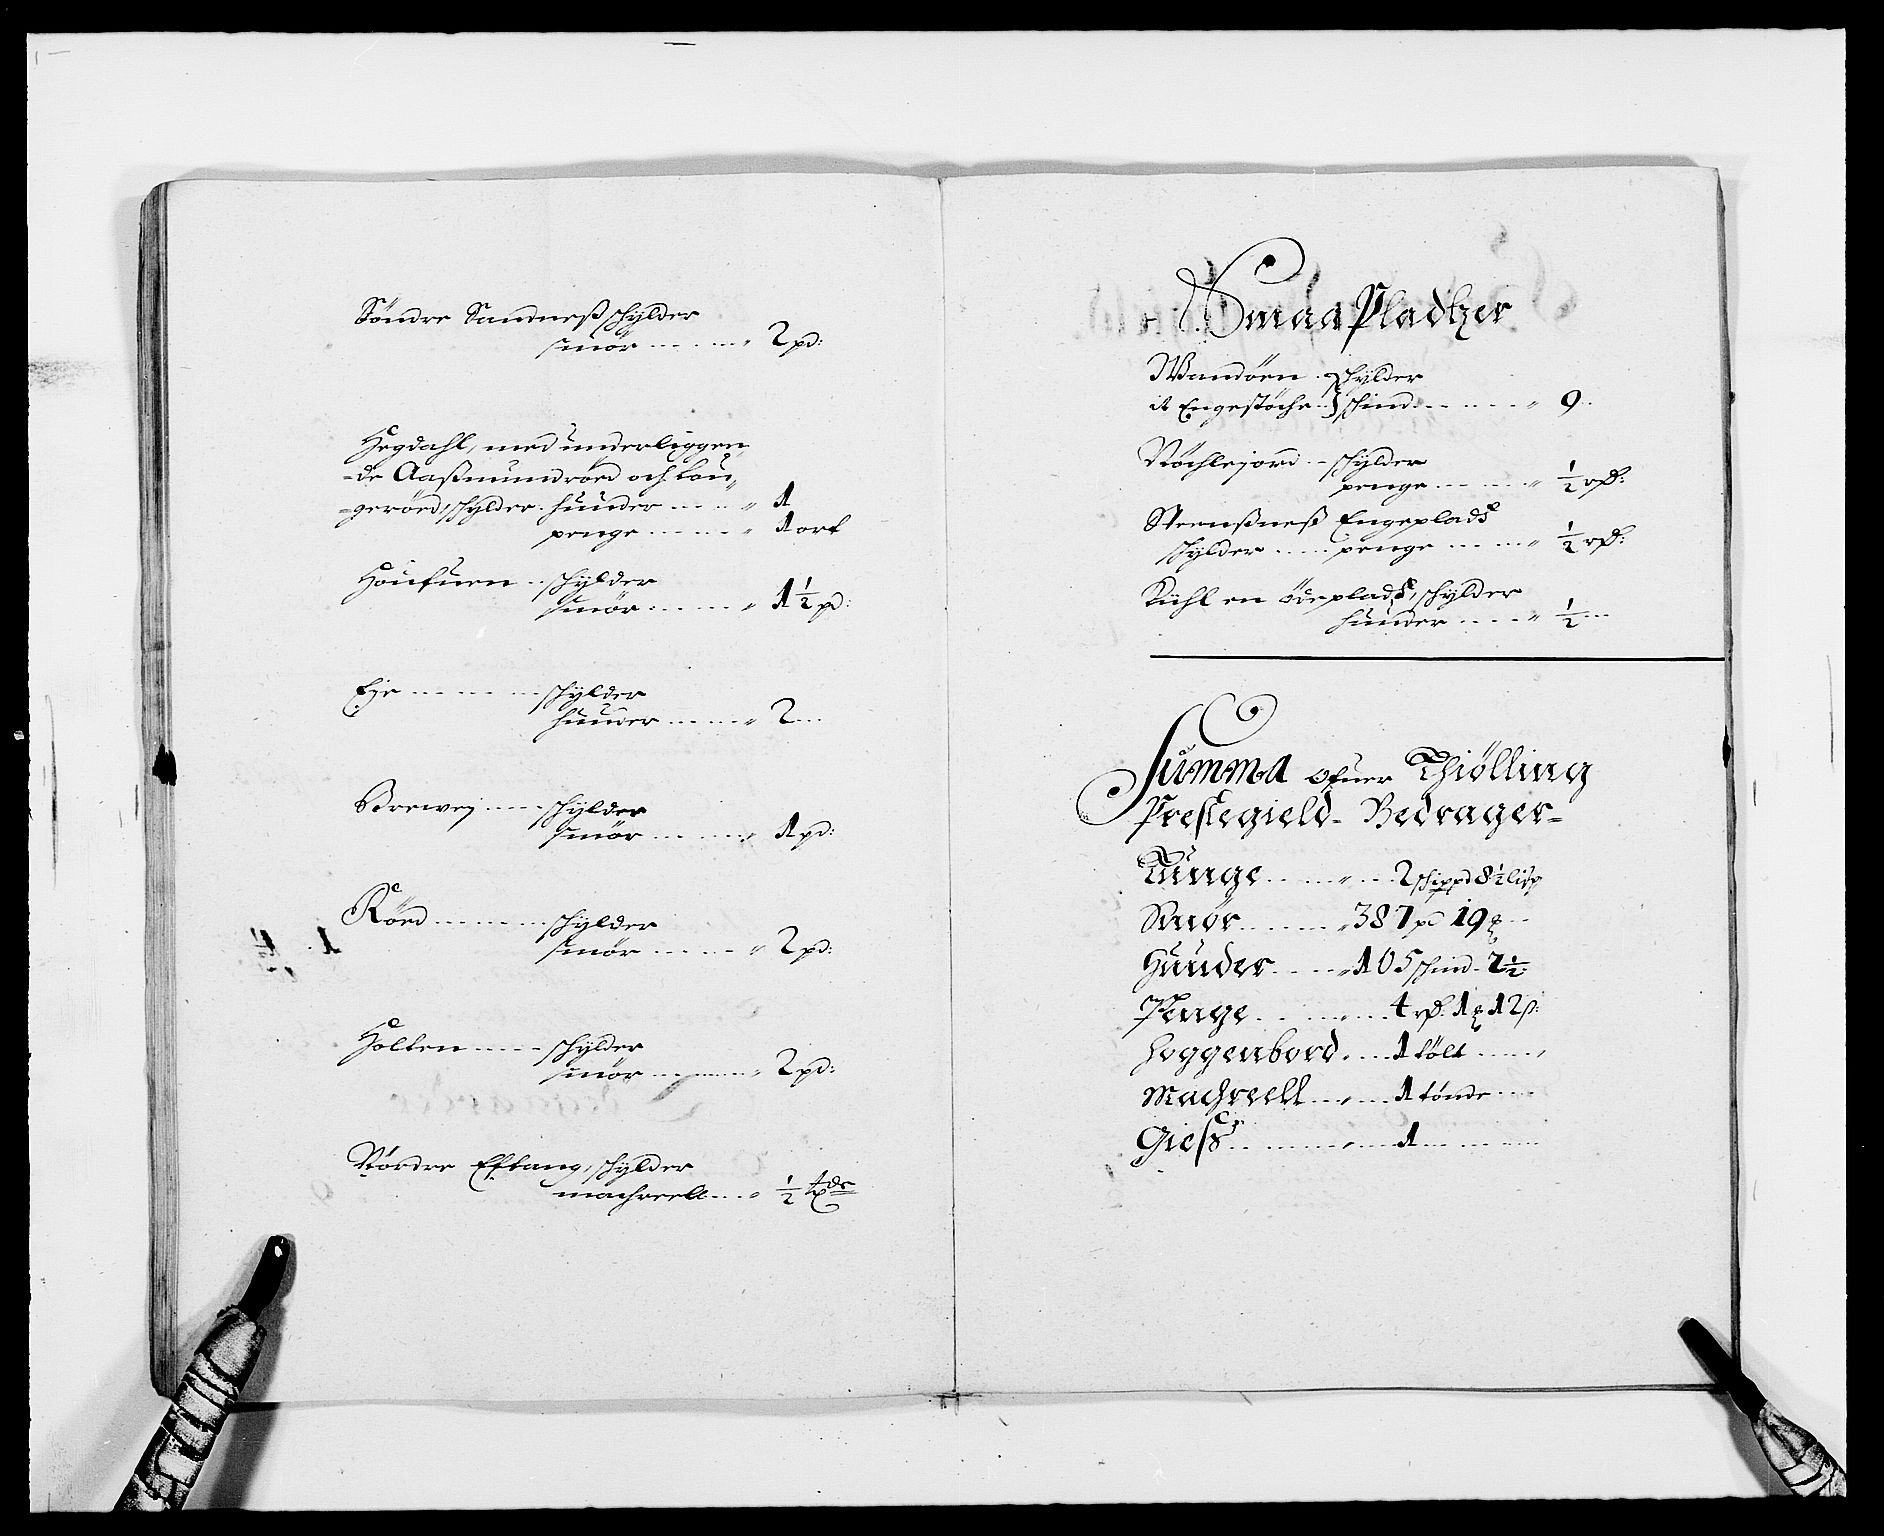 Söndre Sandneß schylder
smör ...... 2 pd:
Hegdahl, med underliggen,
=de Aaßmundröed och Lau,
=geröed, schylder. huuder ..... 1
penge ...... 1 ort
Houfuen .. schylder
smör ...... 1½ pd:
Eye ........ schylder
huuder ...... 2 ...
Brewej ..... schylder
smör ...... 1 pd:
Röed ........ schylder
smör ...... 2 pd:
Holten ..... schylder
smör ...... 2 pd:
Nördre Eftang, schylder
machreell .... ½ tde
Smaa Pladtzer
Wandöen . schylder
it Engestöche .. schind ...... 9 ..
Röchlejord .. schylder
penge ...... ½ rd:
Steenßneß Engepladß
schylder ..... penge ...... ½ rd:
Kuhl en ödepladß, schylder
huuder ..... ½ ...
Summa ofuer Thiølling
Prestegield - Bedrager =
Tunge ........ 2 schippd 8½ lisp
Smör ........ 387 pd 19 ...
Huuder ..... 105 schind . 7½
Penge ....... 4 rd: 1 12 s:
Hoggenbord .... 1 tölt .....
Machreell ..... 1 tönde ....
Gieß ......... 1 ......